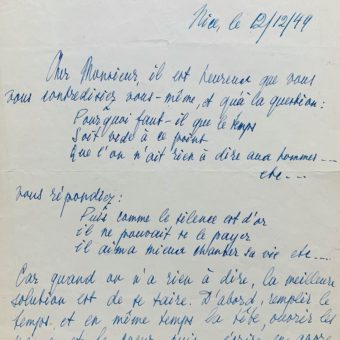 Nice, le 12/12/49
Cher Monsieur, il est heureux que vous
vous contredisiez vous-même, et qu'à la question:
Pourquoi faut-il que le temps
Soit vide à ce point
Que l'on n'ait rien à dire aux hommes....
etc...
vous répondiez:
Puis comme le silence est d'or
il ne pouvait se le payer
il aima mieux chanter sa vie etc...
Car quand on n'a rien à dire, la meilleure
solution est de se taire. D'abord, remplir le
temps, et en même temps la tête, ouvrir les
et le coeur, puis écrire